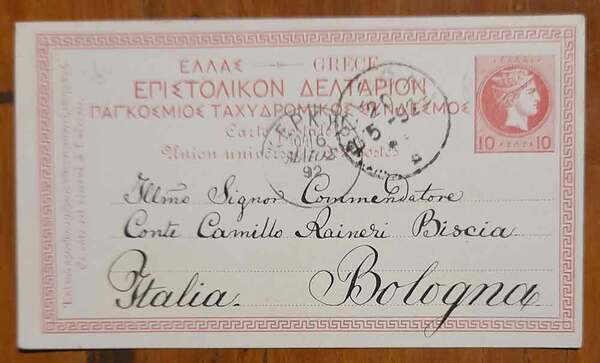 ΕΛΛΑΣ — GRECE
ΕΛΛΑΣ
ΕΠΙΣΤΟΛΙΚΟΝ ΔΕΛΤΑΡΙΟΝ
ΠΑΓΚΟΣΜΙΟΣ ΤΑΧΥΔΡΟΜΙΚΟΣ ΣΥΝΔΕΣΜΟΣ
Carte postale
Union universelle postes
10 ΛΕΠΤΑ 10
ΚΕΡΚΥΡΑ
ΜΑΙΟΣ
92
20
5-92
Illmo Signor Commendatore
Conte Camillo Raineri Biscia
Italia. Bologna